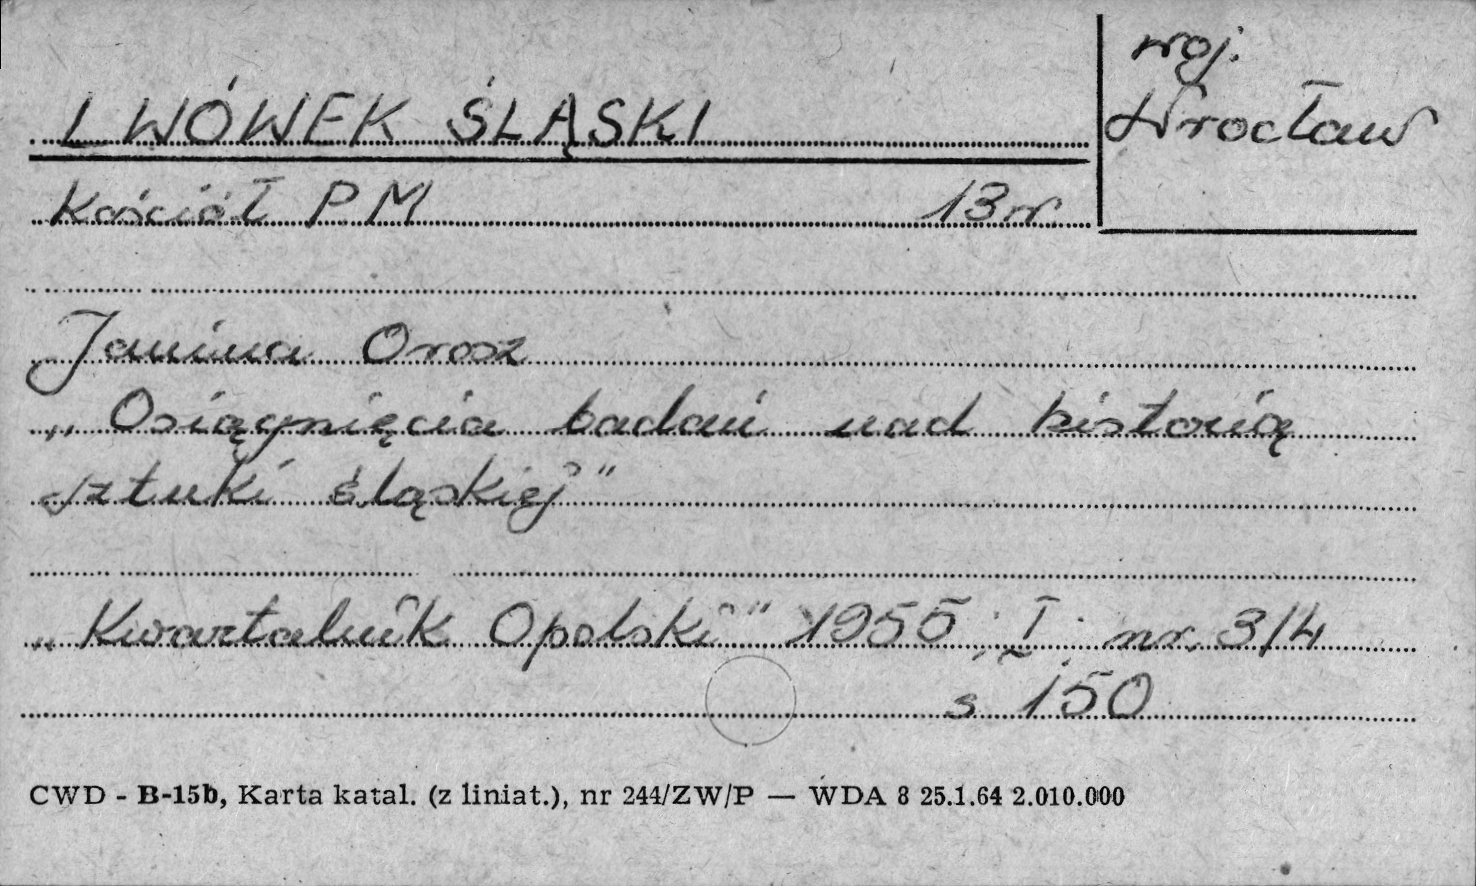 woj.
LWÓWEK ŚLĄSKI
Wrocław
Kościół PM 13 w
Janina Orosz
„Osiągnięcia badań nad historią
sztuki śląskiej"
„Kwartalnik Opolski" 1955, I, nr. 3/4
s 150
CWD - B-15b, Karta katal. (z liniat.), nr 244/ZW/P — WDA 8 25.1.64 2.010.000